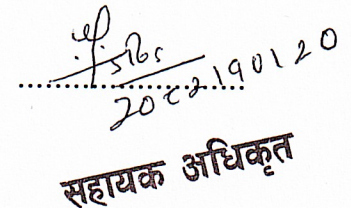 २०८२।१०।२०
सहायक अधिकृत